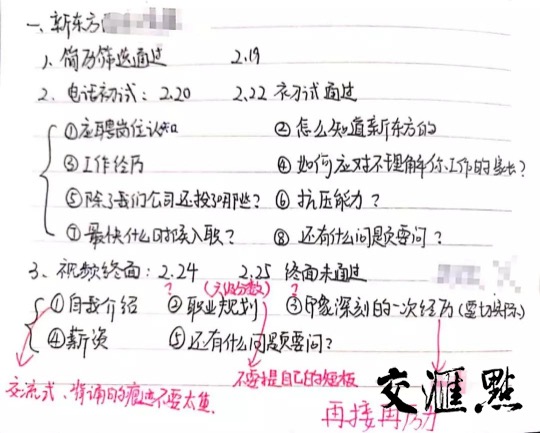 一、新东方
1、简历筛选通过 2.19
2、电话初试：2.20 2.22 初试通过
①应聘岗位认知 ②怎么知道新东方的
③工作经历 ④如何应对不理解你工作的家长？
⑤除了我们公司还投了哪些？ ⑥抗压能力？
⑦最快什么时候入职？ ⑧还有什么问题要问？
3、视频终面：2.24 2.25 终面未通过
? ?
①自我介绍 ②职业规划 ③印象深刻的一次经历(要切实际)
④薪资 ⑤还有什么问题要问？
不要提自己的短板
交流式、背诵的痕迹不要太重
再接再厉
交汇點